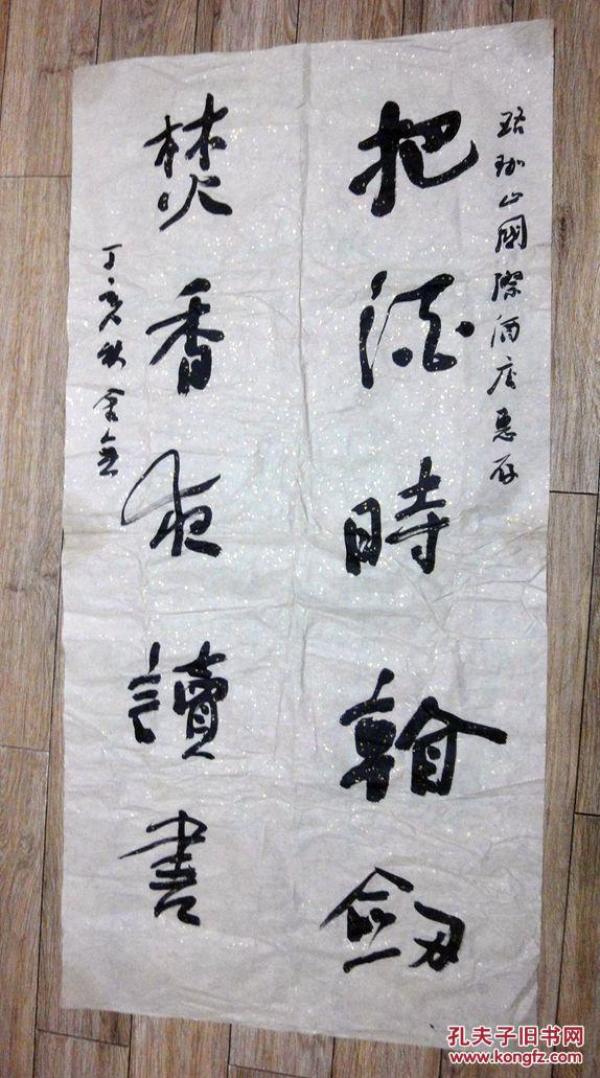 珞珈山國際酒店惠存
把酒時看劍
焚香夜讀書
丁亥秋
孔夫子旧书网
www.kongfz.com